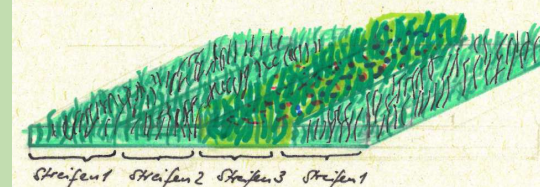 Streifen1 Streifen2 Streifen3 Streifen1